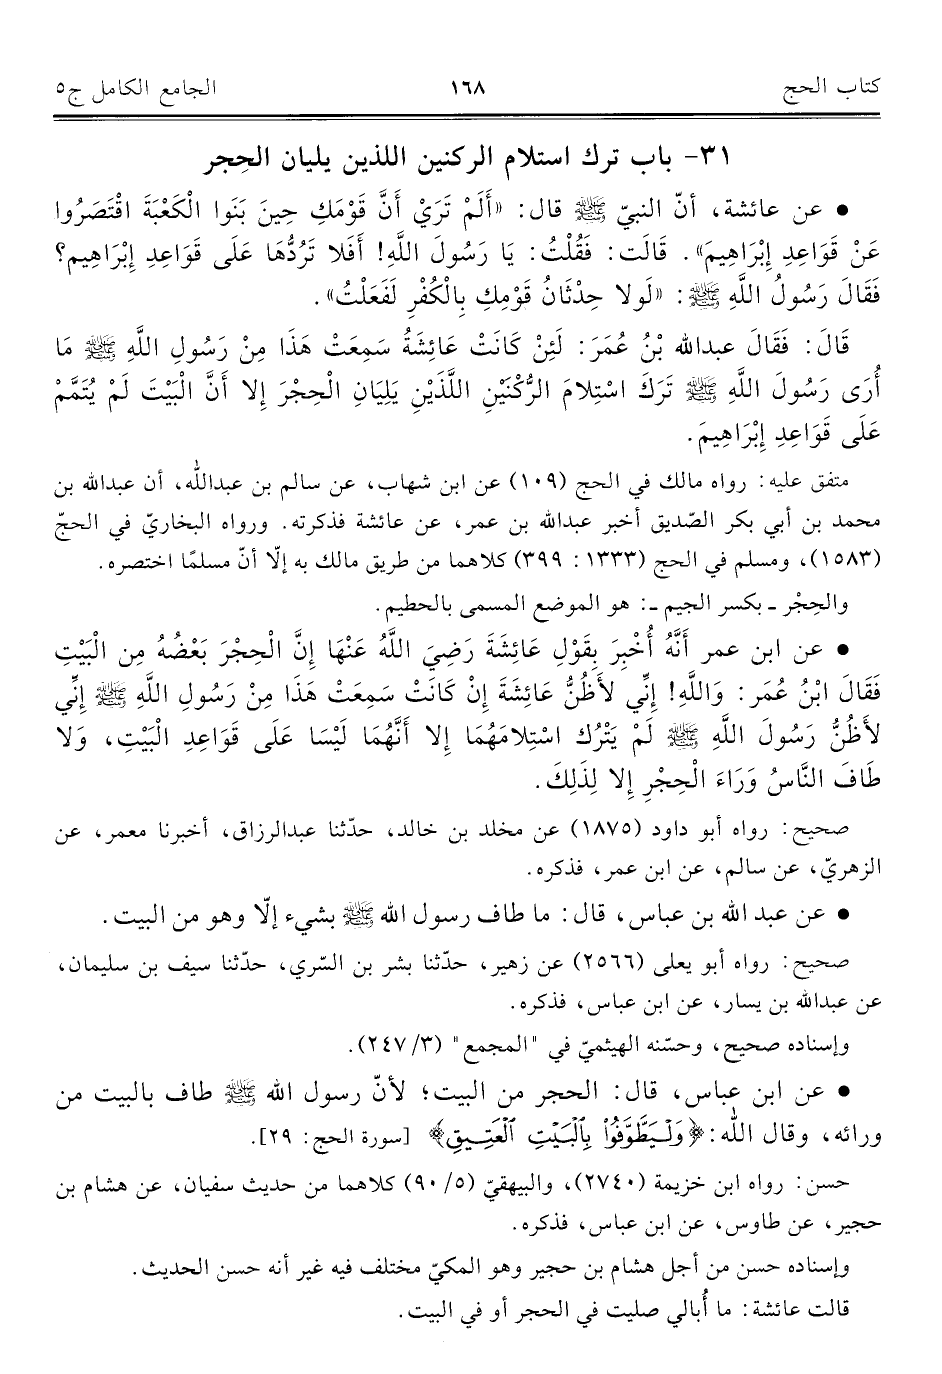 كتاب الحج ١٦٨ الجامع الكامل ج٥
٣١- باب ترك استلام الركنين اللذين يليان الحِجر
• عن عائشة، أنّ النبيّ ﷺ قال: «أَلَمْ تَرَيْ أَنَّ قَوْمَكِ حِينَ بَنَوا الْكَعْبَةَ اقْتَصَرُوا
عَنْ قَوَاعِدِ إِبْرَاهِيمَ». قَالَت: فَقُلْتُ: يَا رَسُولَ اللَّهِ! أَفَلا تَرُدُّهَا عَلَى قَوَاعِدِ إِبْرَاهِيم؟
فَقَالَ رَسُولُ اللَّهِ ﷺ: «لَولا حِدْثَانُ قَوْمِكِ بِالْكُفْرِ لَفَعَلْتُ».
قَالَ: فَقَالَ عبدالله بْنُ عُمَرَ: لَئِنْ كَانَتْ عَائِشَةُ سَمِعَتْ هَذَا مِنْ رَسُولِ اللَّهِ ﷺ مَا
أُرَى رَسُولَ اللَّهِ ﷺ تَرَكَ اسْتِلامَ الرُّكْنَيْنِ اللَّذَيْنِ يَلِيَانِ الْحِجْرَ إِلا أَنَّ الْبَيْتَ لَمْ يُتَمَّمْ
عَلَى قَوَاعِدِ إِبْرَاهِيمَ.
متفق عليه: رواه مالك في الحج (١٠٩) عن ابن شهاب، عن سالم بن عبداللّٰه، أن عبدالله بن
محمد بن أبي بكر الصّديق أخبر عبدالله بن عمر، عن عائشة فذكرته. ورواه البخاريّ في الحجّ
(١٥٨٣)، ومسلم في الحج (١٣٣٣: ٣٩٩) كلاهما من طريق مالك به إلّا أنّ مسلمًا اختصره.
والحِجْر ـ بكسر الجيم ـ: هو الموضع المسمى بالحطيم.
• عن ابن عمر أَنَّهُ أُخْبِرَ بِقَوْلِ عَائِشَةَ رَضِيَ اللَّهُ عَنْهَا إِنَّ الْحِجْرَ بَعْضُهُ مِن الْبَيْتِ
فَقَالَ ابْنُ عُمَر: وَاللَّهِ! إِنِّي لأَظُنُّ عَائِشَةَ إِنْ كَانَتْ سَمِعَتْ هَذَا مِنْ رَسُولِ اللَّهِ ﷺ إِنِّي
لأَظُنُّ رَسُولَ اللَّهِ ﷺ لَمْ يَتْرُك اسْتِلامَهُمَا إِلا أَنَّهُمَا لَيْسَا عَلَى قَوَاعِدِ الْبَيْتِ، وَلا
طَافَ النَّاسُ وَرَاءَ الْحِجْرِ إِلا لِذَلِكَ.
صحيح: رواه أبو داود (١٨٧٥) عن مخلد بن خالد، حدّثنا عبدالرزاق، أخبرنا معمر، عن
الزهريّ، عن سالم، عن ابن عمر، فذكره.
• عن عبد الله بن عباس، قال: ما طاف رسول الله ﷺ بشيء إلّا وهو من البيت.
صحيح: رواه أبو يعلى (٢٥٦٦) عن زهير، حدّثنا بشر بن السّري، حدّثنا سيف بن سليمان،
عن عبدالله بن يسار، عن ابن عباس، فذكره.
وإسناده صحيح، وحسّنه الهيثميّ في "المجمع" (٢٤٧/٣).
• عن ابن عباس، قال: الحجر من البيت؛ لأنّ رسول الله ﷺ طاف بالبيت من
ورائه، وقال اللّٰه: ﴿وَلْيَطَّوَّفُوا۟ بِٱلْبَيْتِ ٱلْعَتِيقِ﴾ [سورة الحج: ٢٩].
حسن: رواه ابن خزيمة (٢٧٤٠)، والبيهقيّ (٩٠/٥) كلاهما من حديث سفيان، عن هشام بن
حجير، عن طاوس، عن ابن عباس، فذكره.
وإسناده حسن من أجل هشام بن حجير وهو المكيّ مختلف فيه غير أنه حسن الحديث.
قالت عائشة: ما أُبالي صليت في الحجر أو في البيت.